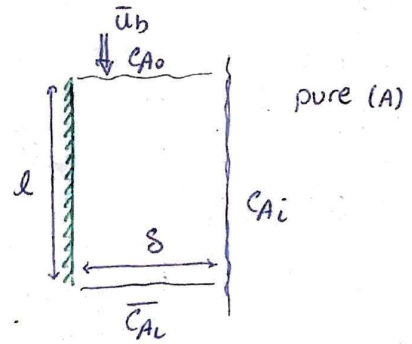 u̅b
CAo
pure (A)
l
CAi
δ
C̅A̅L̅